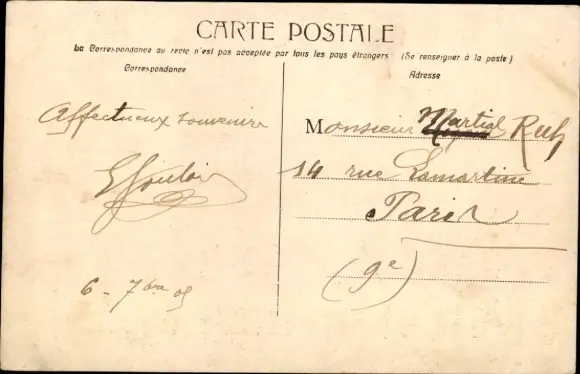 CARTE POSTALE
La Correspondance au recto n'est pas acceptée par tous les pays étrangers (Se renseigner à la poste)
Correspondance
Adresse
Affectueux souvenir
6 - 7bre 05
Monsieur Martial
14 rue Lamartine
Paris
(9e)